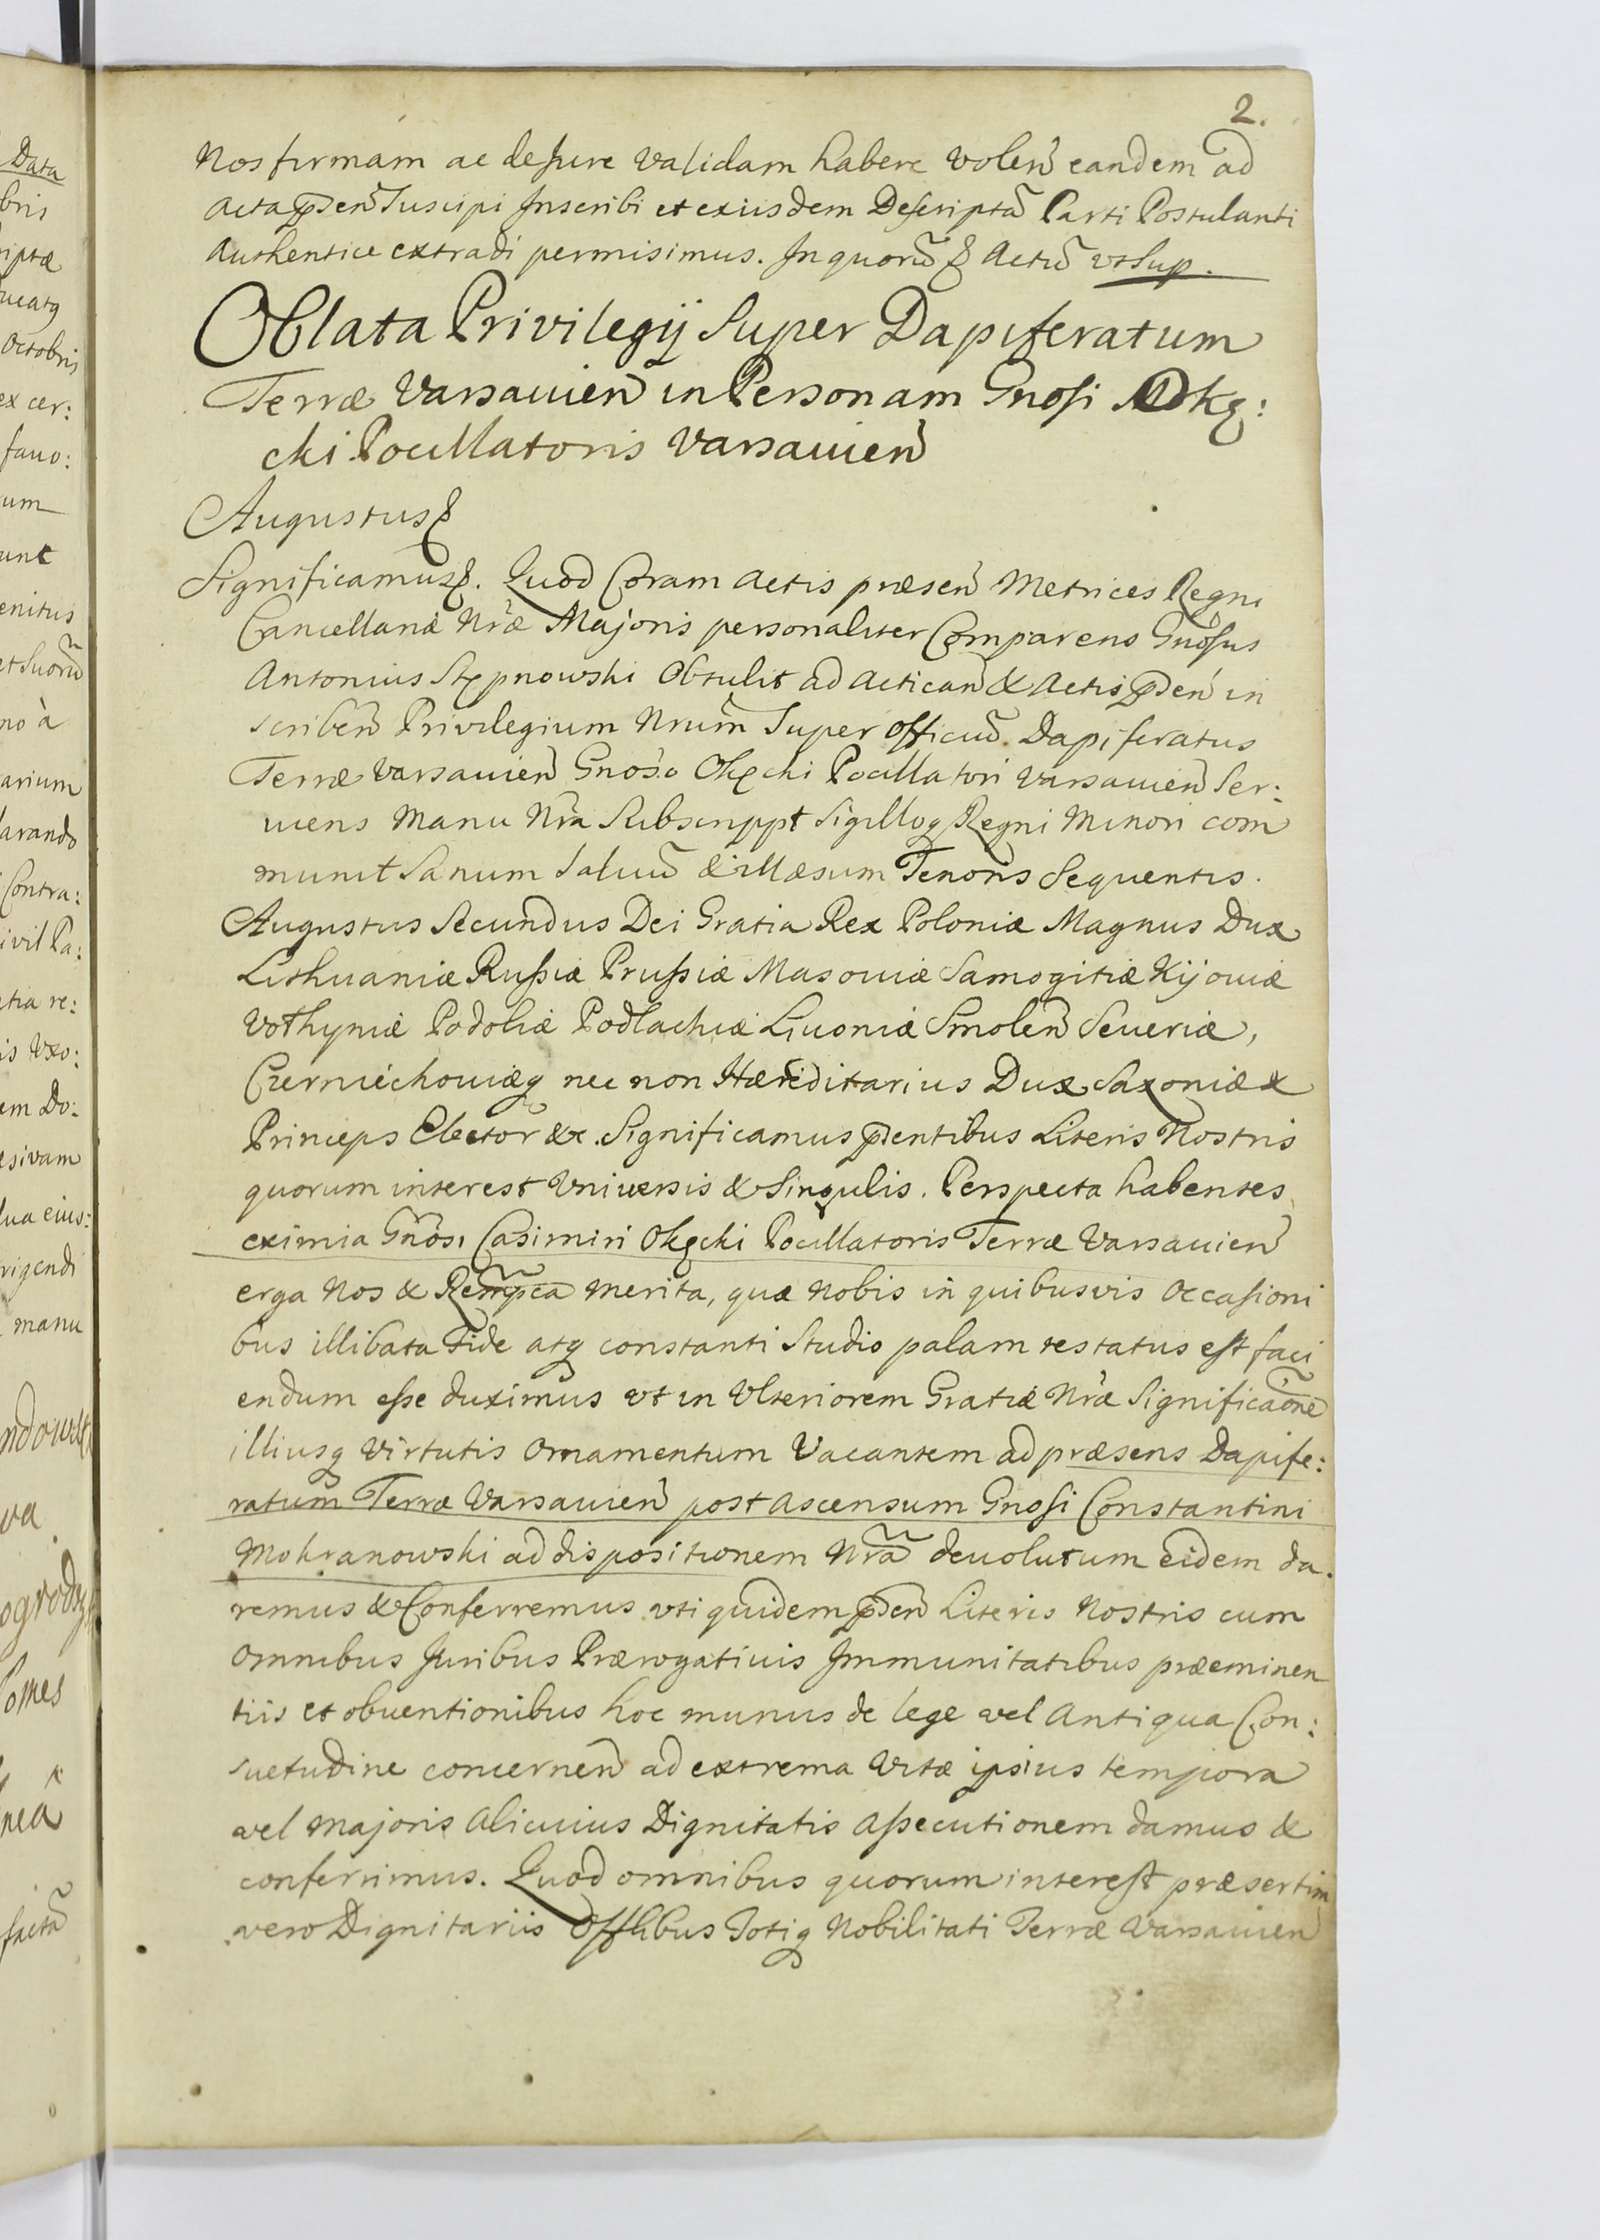 2.
Nos firmam ac de Jure Validam habere Volen̄ eandem ad
Acta p̄sen̄ Suscipi Inscribi et exiisdem Descriptā Parti Postulanti
Authentice extradi permisimus. In quorū & Actū vt Sup.
Oblata Privilegij Super Dapiferatum
Terræ Varsauien̄ in Personam Gnosi Okę:
cki Pocillatoris Varsauien̄
Augustus &
Significamus &. Quod Coram Actis præsen̄ Metrices Regni
Cancellariæ Nr̄æ Majoris personaliter Comparens Gnōsus
Antonius Stępnowski Obtulit ad Actican̄ & Actis p̄sen̄ in
scriben̄ Privilegium Nrum̄ Super Officiū Dapiferatus
Terræ Varsauien̄ Gnoso Okęcki Pocillatori Varsauien̄ Ser:
uiens Manu Nr̄a Subscrippt Sigilloq Regni Minori com
munit Sanum Saluū & illæsum Tenoris Sequentis.
Augustus Secundus Dei Gratia Rex Poloniæ Magnus Dux
Lithuaniæ Russiæ Prussiæ Masouiæ Samogitiæ Kijouiæ
Volhyniæ Podoliæ Podlachiæ Liuoniæ Smolen̄ Seueriæ,
Czerniechouiæq nec non Hæreditarius Dux Saxoniæ &
Princeps Elector &c. Significamus p̄sentibus Literis Nostris
quorum interest Vniuersis & Singulis. Perspecta habentes
eximia Gnōsi Casimiri Okęcki Pocillatoris Terræ Varsauien̄
erga Nos & Rempca̅ merita, quæ Nobis in quibusvis Occasioni
bus illibata Fide atq constanti Studio palam testatus est faci
endum esse duximus vt in Vlteriorem Gratiæ Nr̄æ Significaōne
illiusq Virtutis Ornamentum Vacantem ad præsens Dapife:
ratum Terræ Varsauien̄ post Ascensum Gnosi Constantini
Mokranowski ad dispositionem Nr̄a̅ deuolutum eidem da
remus & Conferremus vti quidem p̄sen̄ Literis Nostris cum
Omnibus Juribus Prærogatiuis Immunitatibus præeminen
tiis et obuentionibus hoc munus de lege vel Antiqua Con:
suetudine concernen̄ ad extrema Vitæ ipsius tempora
vel Majoris Alicuius Dignitatis Assecutionem damus &
conferimus. Quod omnibus quorum interest præsertim
vero Dignitariis Offlibus Totiq Nobilitati Terræ Varsauien̄